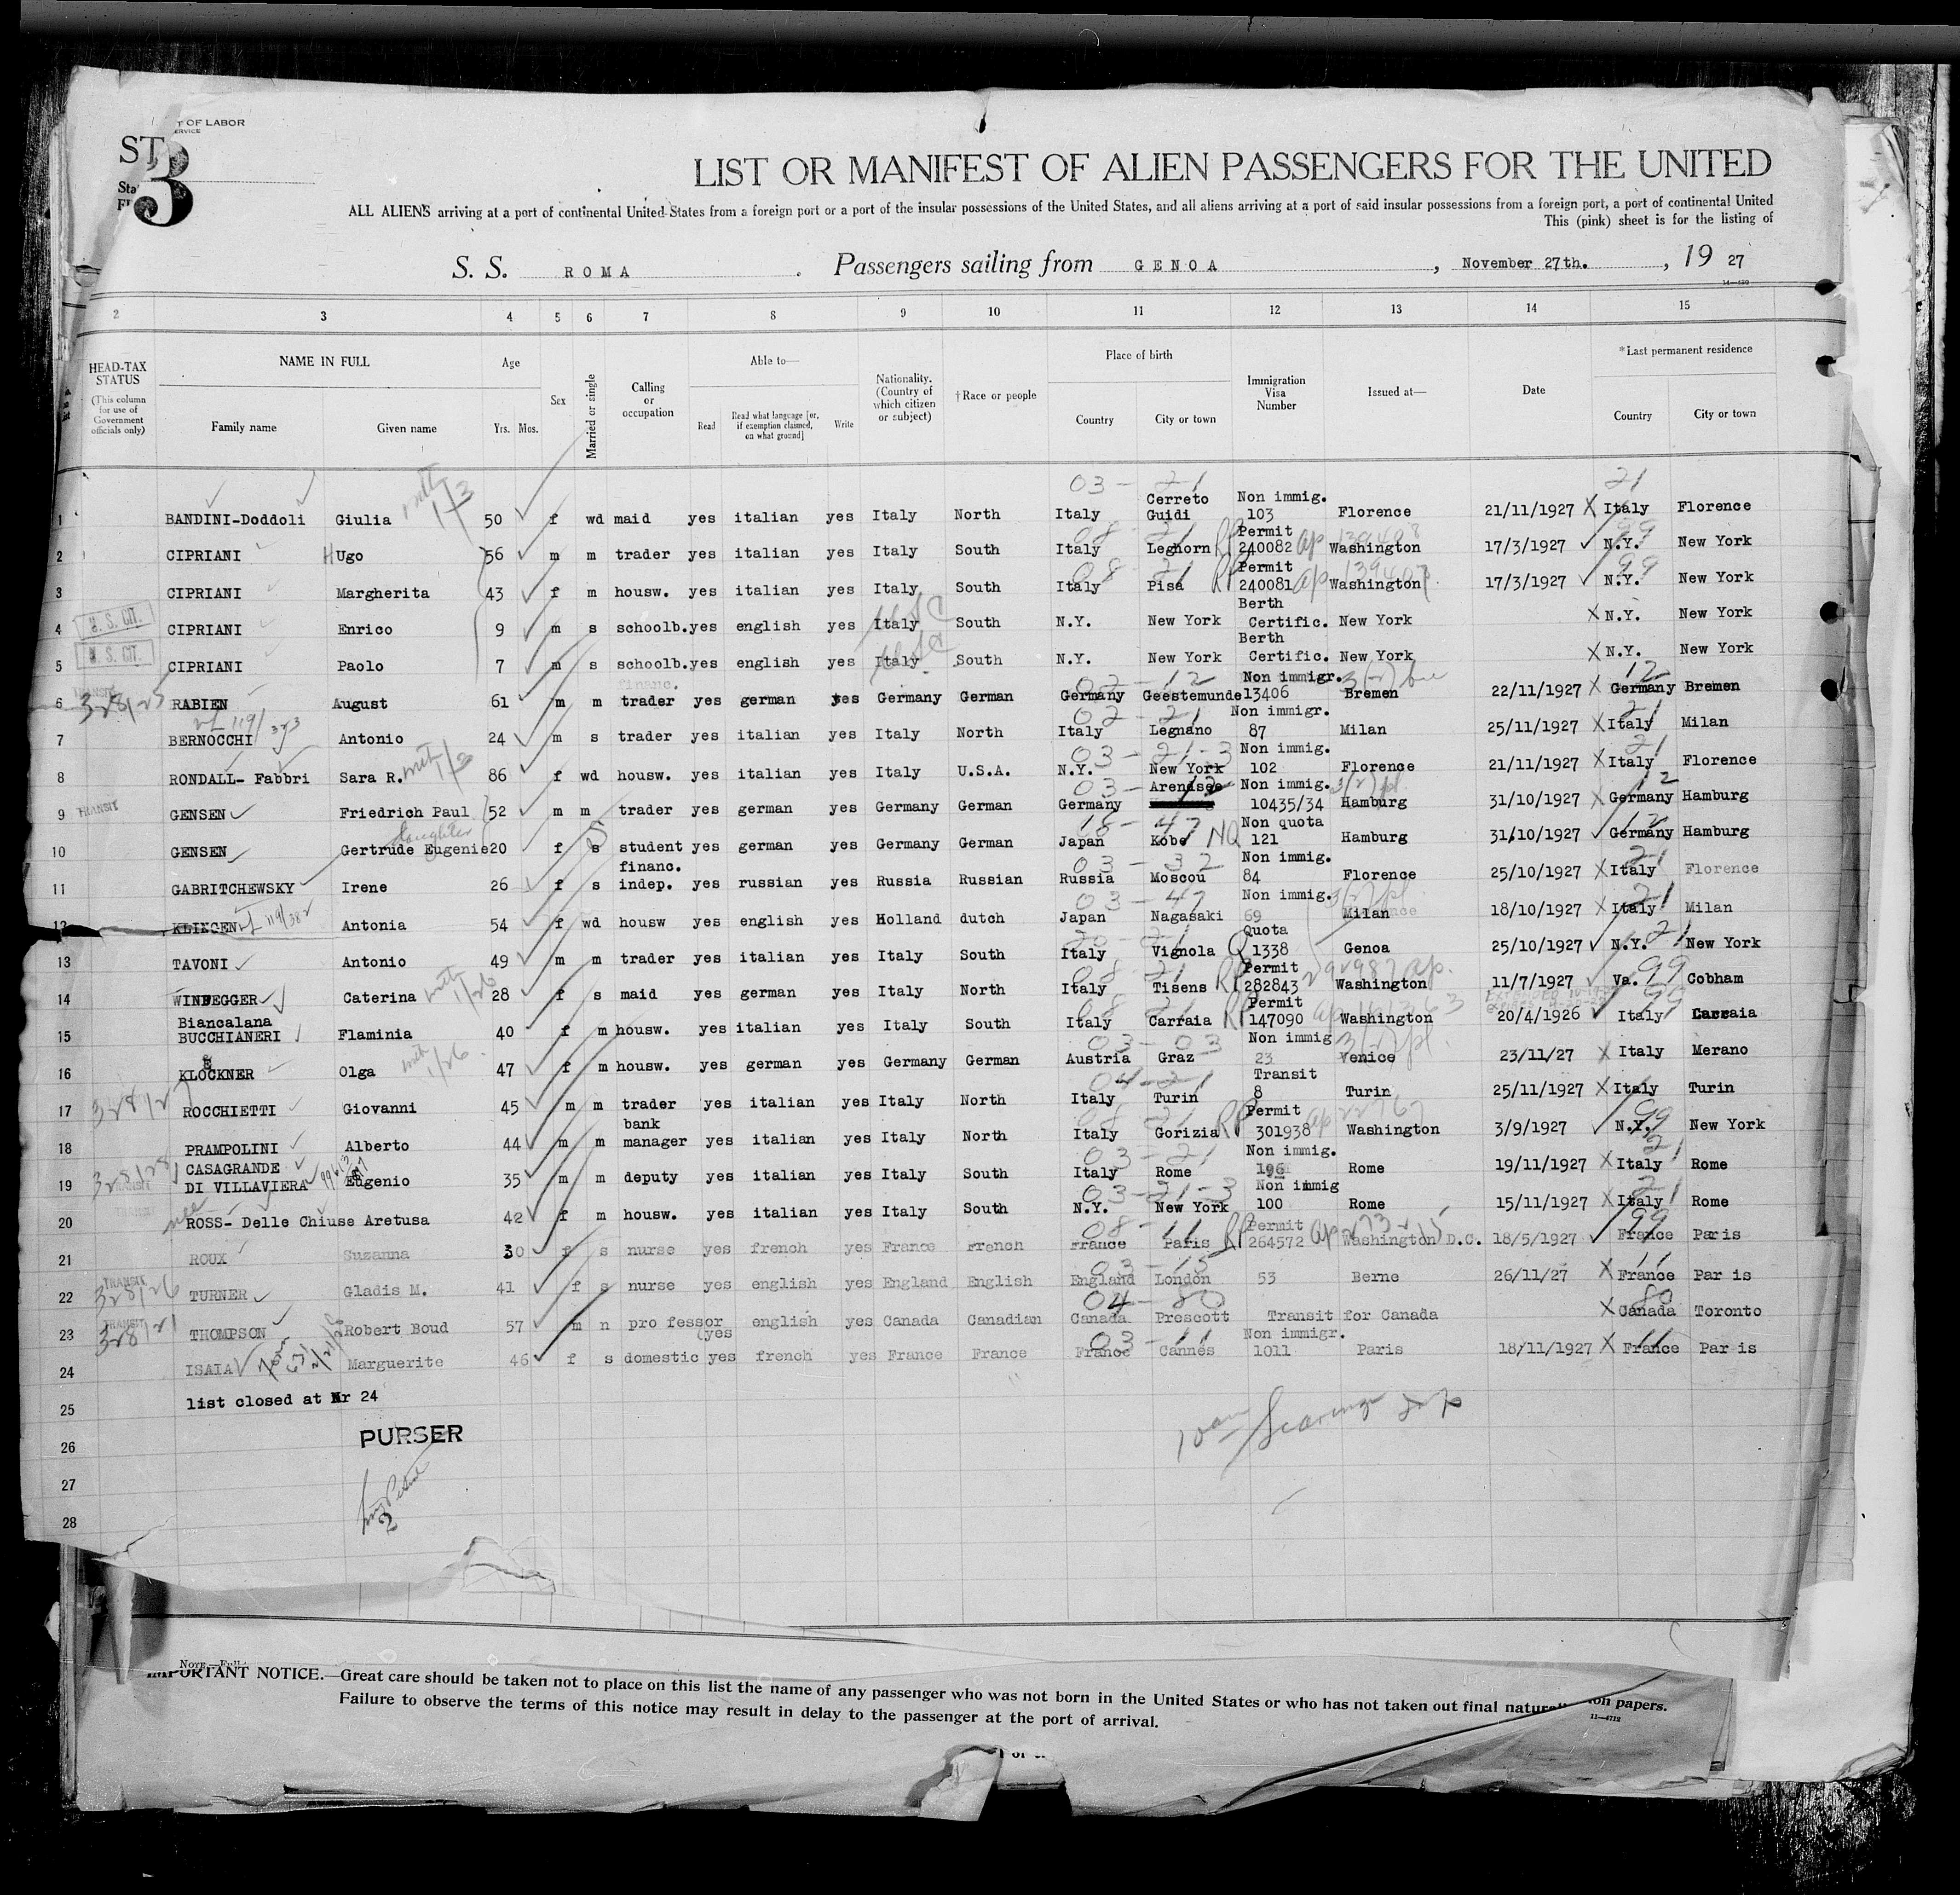 T OF LABOR
ERVICE
ST
3
LIST OR MANIFEST OF ALIEN PASSENGERS FOR THE UNITED
ALL ALIENS arriving at a port of continental United States from a foreign port or a port of the insular possessions of the United States, and all aliens arriving at a port of said insular possessions from a foreign port, a port of continental United
This (pink) sheet is for the listing of
S. S. ROMA. Passengers sailing from GENOA, November 27th., 19 27
2 3 4 5 6 7 8 9 10 11 12 13 14 15
HEAD-TAX STATUS (This column for use of Government officials only) NAME IN FULL Family name Given name Age Yrs. Mos. Sex Married or single Calling or occupation Able to— Read Read what language [or, if exemption claimed, on what ground] Write Nationality. (Country of which citizen or subject) †Race or people Place of birth Country City or town Immigration Visa Number Issued at— Date *Last permanent residence Country City or town
1 BANDINI-Doddoli Giulia 50 f wd maid yes italian yes Italy North Italy Cerreto Guidi Non immig. 103 Florence 21/11/1927 X Italy Florence
2 CIPRIANI HUgo 56 m m trader yes italian yes Italy South Italy Leghorn Permit 240082 Washington 17/3/1927 N.Y. New York
3 CIPRIANI Margherita 43 f m housw. yes italian yes Italy South Italy Pisa Permit 240081 Washington 17/3/1927 N.Y. New York
U. S. CIT.
4 CIPRIANI Enrico 9 m s schoolb. yes english yes Italy South N.Y. New York Berth Certific. New York X N.Y. New York
U. S. CIT.
5 CIPRIANI Paolo 7 m s schoolb. yes english yes Italy South N.Y. New York Berth Certific. New York X N.Y. New York
6 RABIEN August 61 m m financ. trader yes german yes Germany German Germany Geestemunde Non immigr. 13406 Bremen 22/11/1927 X Germany Bremen
7 BERNOCCHI Antonio 24 m s trader yes italian yes Italy North Italy Legnano Non immigr. 87 Milan 25/11/1927 X Italy Milan
8 RONDALL- Fabbri Sara R. 86 f wd housw. yes italian yes Italy U.S.A. N.Y. New York Non immig. 102 Florence 21/11/1927 X Italy Florence
9 TRANSIT GENSEN Friedrich Paul 52 m m trader yes german yes Germany German Germany Arendsee Non immig. 10435/34 Hamburg 31/10/1927 X Germany Hamburg
daughter
10 GENSEN Gertrude Eugenie 20 f s student yes german yes Germany German Japan Kobe NQ Non quota 121 Hamburg 31/10/1927 Germany Hamburg
11 GABRITCHEWSKY Irene 26 f s financ. indep. yes russian yes Russia Russian Russia Moscou Non immig. 84 Florence 25/10/1927 X Italy Florence
12 KLINGEN Antonia 54 f wd housw yes english yes Holland dutch Japan Nagasaki Non immig. 69 Milan 18/10/1927 X Italy Milan
13 TAVONI Antonio 49 m m trader yes italian yes Italy South Italy Vignola Q Quota 1338 Genoa 25/10/1927 N.Y. New York
14 WINDEGGER Caterina 28 f s maid yes german yes Italy North Italy Tisens Permit 282843 Washington 11/7/1927 Va. Cobham
15 Biancalana BUCCHIANERI Flaminia 40 f m housw. yes italian yes Italy South Italy Carraia Permit 147090 Washington 20/4/1926 Italy Carraia
16 KLOCKNER Olga 47 f m housw. yes german yes Germany German Austria Graz Non immig 23 Venice 23/11/27 X Italy Merano
17 ROCCHIETTI Giovanni 45 m m trader yes italian yes Italy North Italy Turin Transit 8 Turin 25/11/1927 X Italy Turin
18 PRAMPOLINI Alberto 44 m m bank manager yes italian yes Italy North Italy Gorizia Permit 301938 Washington 3/9/1927 N.Y. New York
19 CASAGRANDE DI VILLAVIERA Eugenio 35 m m deputy yes italian yes Italy South Italy Rome Non immig. 196 Rome 19/11/1927 X Italy Rome
20 nee ROSS- Delle Chiuse Aretusa 42 f m housw. yes italian yes Italy South N.Y. New York Non immig 100 Rome 15/11/1927 X Italy Rome
21 ROUX Suzanna 30 f s nurse yes french yes France French France Paris Permit 264572 Washington D.C. 18/5/1927 France Paris
22 TRANSIT TURNER Gladis M. 41 f s nurse yes english yes England English England London 53 Berne 26/11/27 X France Par is
23 TRANSIT THOMPSON Robert Boud 57 m n pro fessor (yes english yes Canada Canadian Canada Prescott Transit for Canada X Canada Toronto
24 ISAIA Marguerite 46 f s domestic yes french yes France France France Cannes Non immigr. 1011 Paris 18/11/1927 X France Par is
25 list closed at Nr 24
26 PURSER
27
28
NOTE.—Full
IMPORTANT NOTICE.—Great care should be taken not to place on this list the name of any passenger who was not born in the United States or who has not taken out final natural ion papers.
Failure to observe the terms of this notice may result in delay to the passenger at the port of arrival.
11—4712